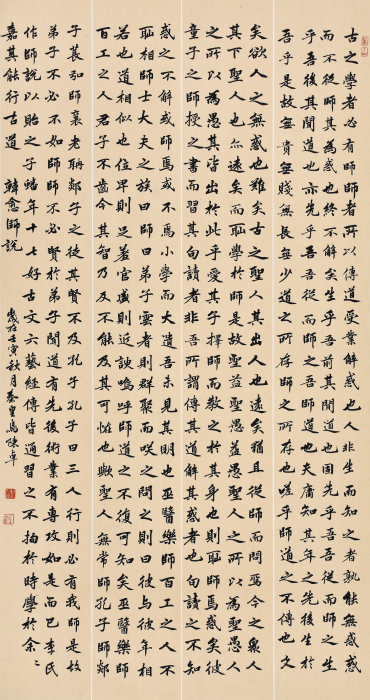 古之學者必有師師者所以傳道受業解惑也人非生而知之者孰能無惑惑
而不從師其為惑也終不解矣生乎吾前其聞道也固先乎吾吾從而師之生
乎吾後其聞道也亦先乎吾吾從而師之吾師道也夫庸知其年之先後生於
吾乎是故無貴無賤無長無少道之所存師之所存也嗟乎師道之不傳也久
矣欲人之無惑也難矣古之聖人其出人也遠矣猶且從師而問焉今之衆人
其下聖人也亦遠矣而恥學於師是故聖益聖愚益愚聖人之所以為聖愚人
之所以為愚其皆出於此乎愛其子擇師而教之於其身也則恥師焉惑矣彼
童子之師授之書而習其句讀者非吾所謂傳其道解其惑者也句讀之不知
惑之不解或師焉或不焉小學而大遺吾未見其明也巫醫樂師百工之人不
恥相師士大夫之族曰師曰弟子雲者則群聚而笑之問之則曰彼與彼年相
若也道相似也位卑則足羞官盛則近諛嗚呼師道之不復可知矣巫醫樂師
百工之人君子不齒今其智乃反不能及其可怪也歟聖人無常師孔子師郯
子萇弘師襄老聃郯子之徒其賢不及孔子孔子曰三人行則必有我師是故
弟子不必不如師師不必賢於弟子聞道有先後術業有專攻如是而已李氏
作師說以貽之子蟠年十七好古文六藝經傳皆通習之不拘於時學於余〻
嘉其能行古道 韓愈師說 歲在壬寅秋月秦皇島陳卓